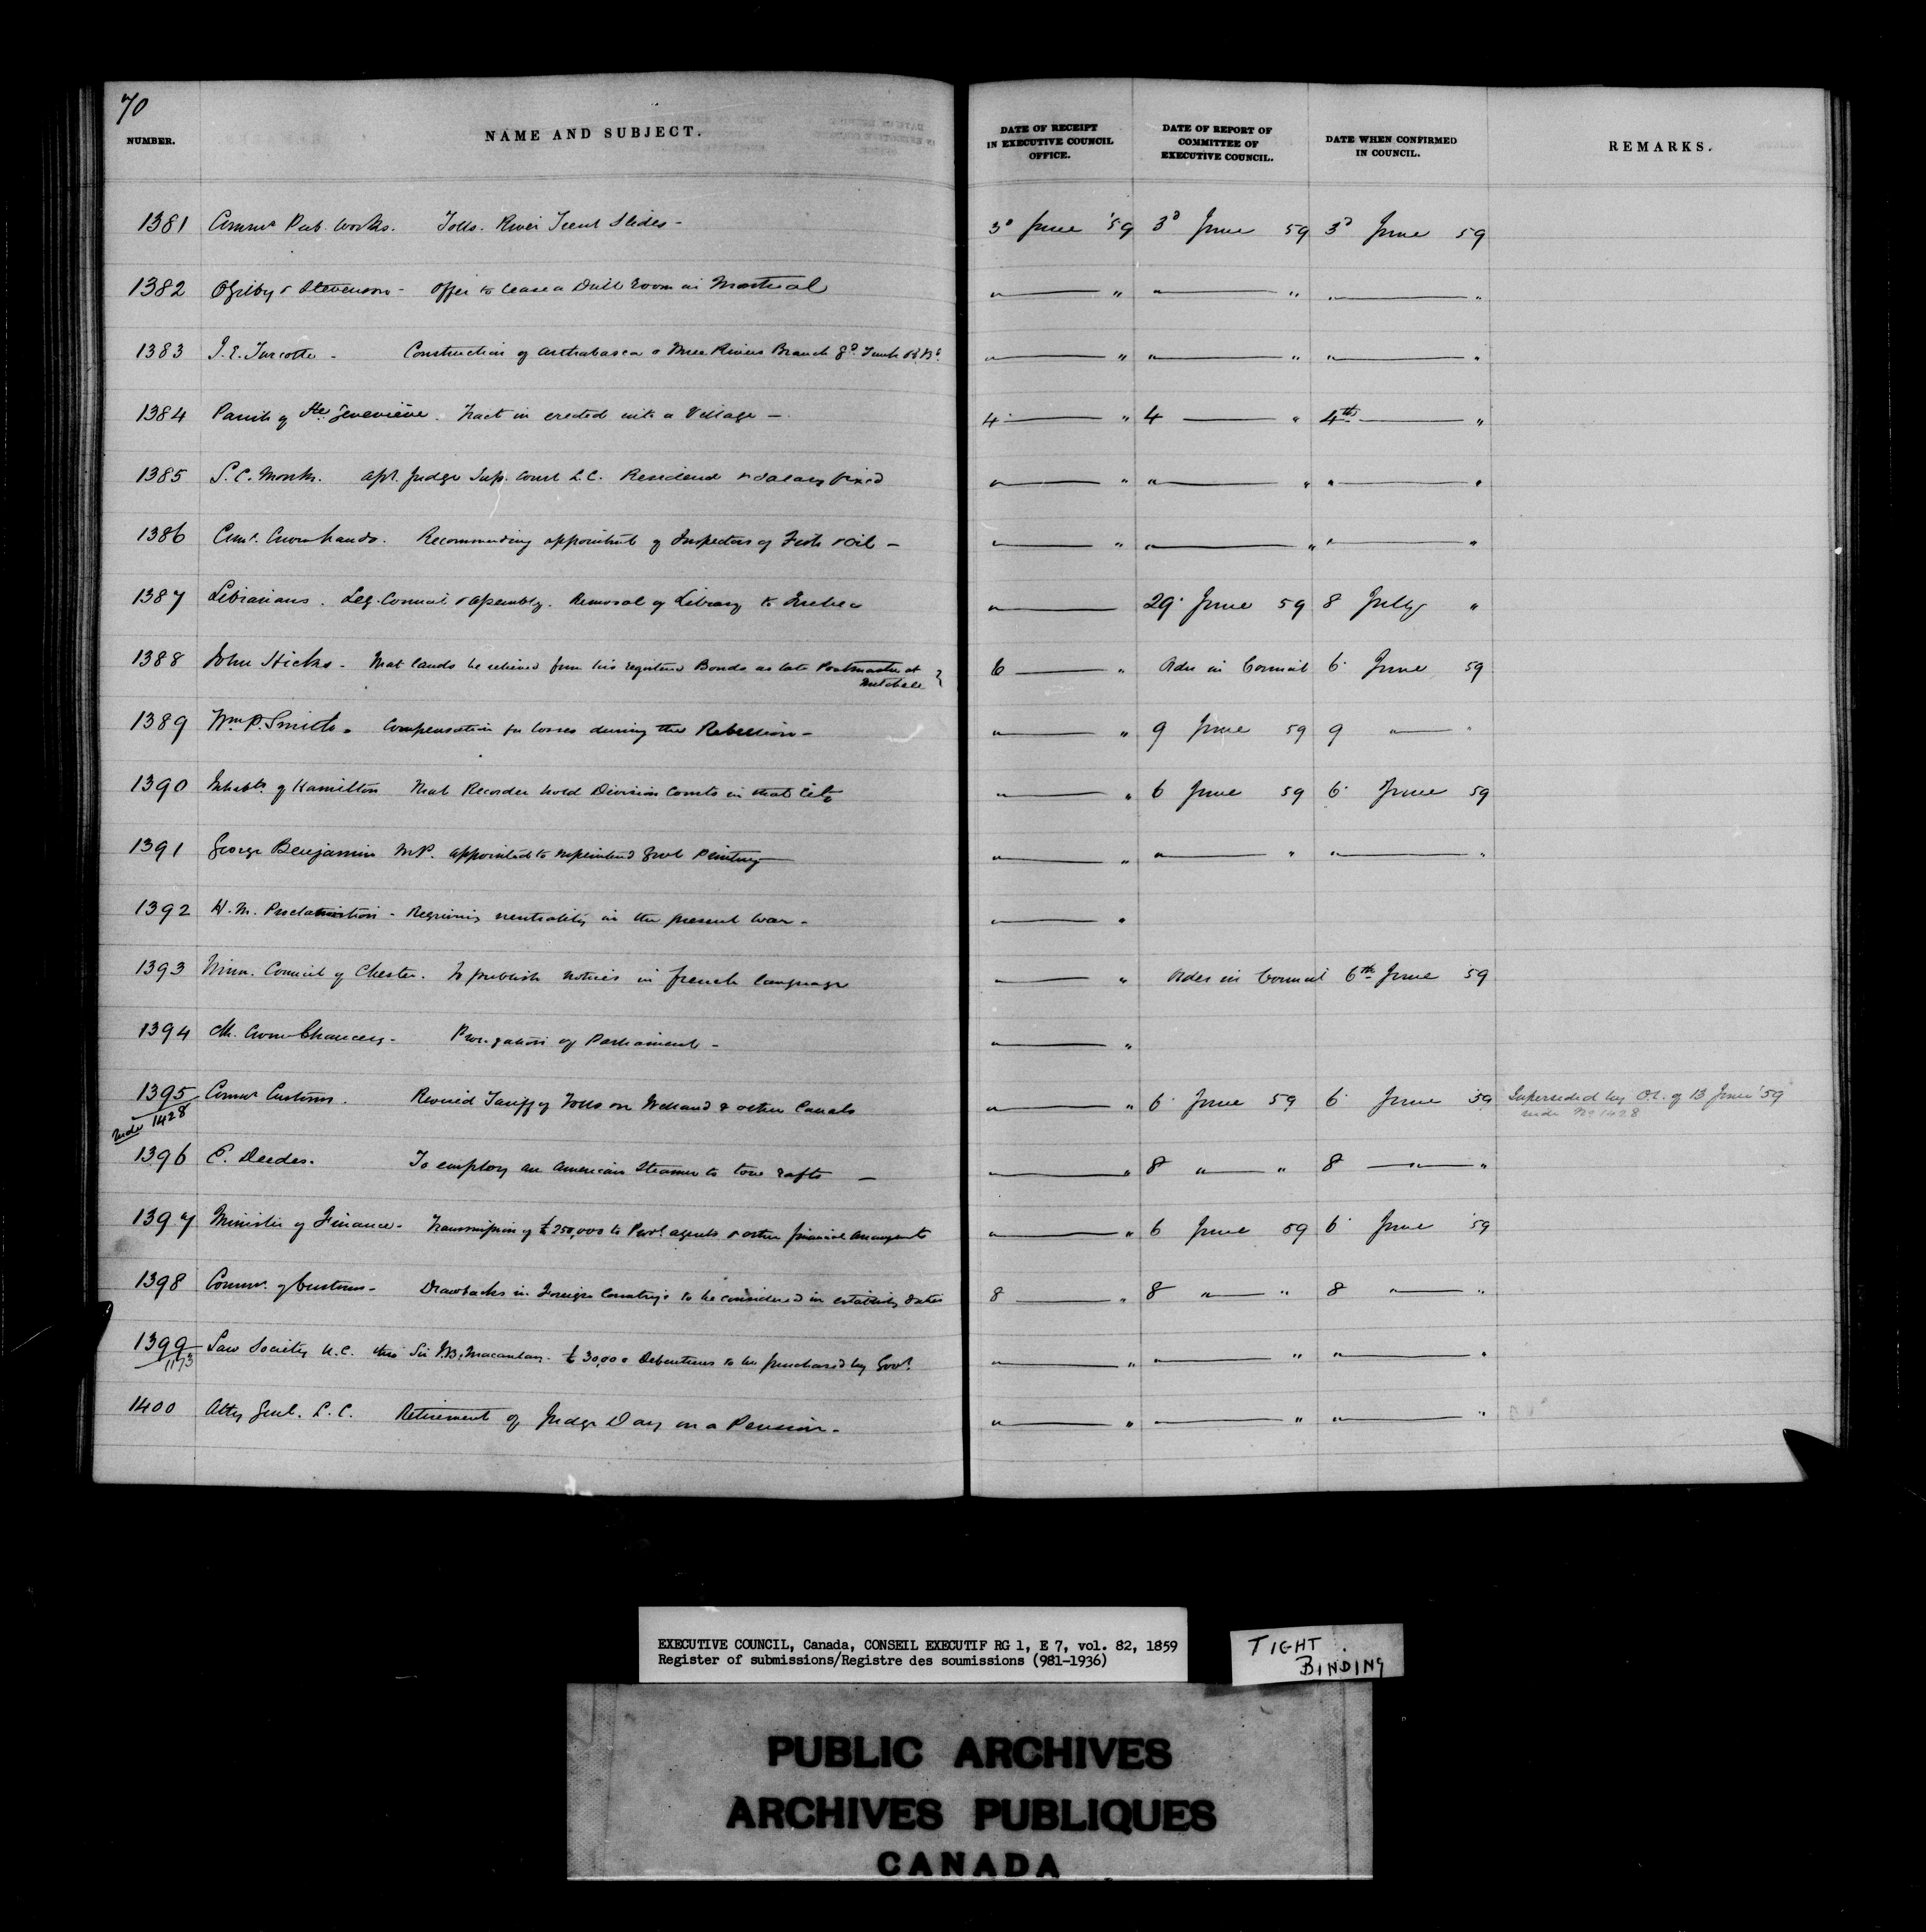 70
NUMBER. NAME AND SUBJECT. DATE OF RECEIPT IN EXECUTIVE COUNCIL OFFICE. DATE OF REPORT OF COMMITTEE OF EXECUTIVE COUNCIL. DATE WHEN CONFIRMED IN COUNCIL. REMARKS.
1381 Commr Pub. Works. Tolls. River Trent Slides - 3d June '59 3d June 59 3d June 59
1382 Ogilby & Stevenson - Offer to lease a Drill room in Montreal " " " " " "
1383 J. E. Turcotte - Construction of Arthabasca & Three Rivers Branch Gd. Trunk " " " " " "
1384 Parish of Ste. Geneviève. Tract in erected into a Village - 4 " 4 " 4th "
1385 S. C. Monk. Apt. Judge Sup. Court L.C. Residence & salary fixed " " " " " "
1386 Comr. Crown Lands. Recommending appointmt of Inspectors of Fish & Oil - " " " " " "
1387 Librarians. Leg. Council & Assembly. Removal of Library to Quebec " 29 June 59 8 July "
1388 John Hicks - That lands be relieved from his registered Bonds as late Postmaster at Mitchell 6 " Order in Council 6 June 59
1389 Wm. P. Smith. Compensation for losses during the Rebellion - " " 9 June 59 9 " "
1390 Inhabts. of Hamilton That Recorder hold Division Courts in that City " " 6 June 59 6 June 59
1391 George Benjamin MP. appointed to superintend Govt Printing " " " " " "
1392 H. M. Proclamation - Requiring neutrality in the present war - " "
1393 Munn. Council of Chester. To publish notices in french language " " Order in Council 6th June 59
1394 Clk. Crown Chancery - Prorogation of Parliament - " "
1395 Commr Customs. Revised Tariff of Tolls on Welland & other Canals " " 6 June 59 6 June 59 Superseded by O.C. of 13 June '59
vide 1428 vide No 1428
1396 E. Deedes. To employ an American Steamer to tow rafts - " " 8 " " 8 " "
1397 Minister of Finance - Transmission of £250,000 to Provl. agents & other financial arrangents " " 6 June 59 6 June 59
1398 Commr. of Customs - Drawbacks in Foreign Country's to be considered in establishg duties 8 " 8 " " 8 " "
1399 Law Society U.C. thro Sir J.B. Macaulay. £30,000 Debentures to be purchased by Govt. " " " " " "
1173
1400 Atty Genl. L.C. Retirement of Judge Day on a Pension - " " " " " "
EXECUTIVE COUNCIL, Canada, CONSEIL EXECUTIF RG 1, E 7, vol. 82, 1859
Register of submissions/Registre des soumissions (981-1936)
TIGHT
BINDING
PUBLIC ARCHIVES
ARCHIVES PUBLIQUES
CANADA